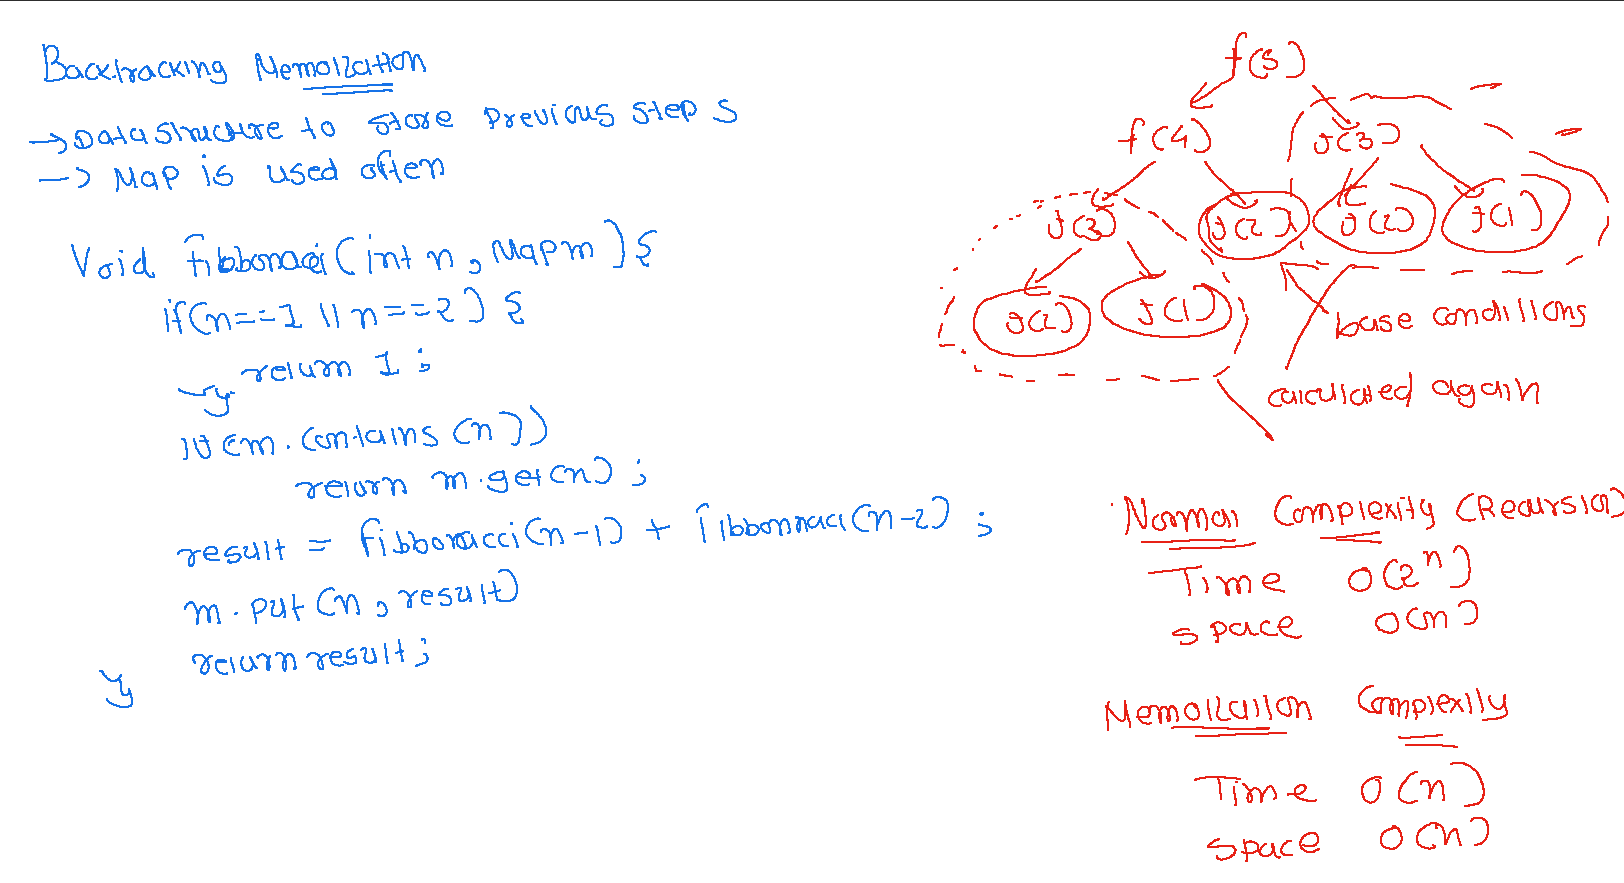 Backtracking Memoization
→ Datastructure to store previous steps
→ Map is used often
Void fibbonacci(int n, Map m) {
if(n==1 || n==2) {
return 1;
}
if(m.contains(n))
return m.get(n);
result = fibbonacci(n-1) + fibbonnaci(n-2);
m.put(n, result)
return result;
}
f(5)
f(4) f(3)
f(3) f(2) f(2) f(1)
f(2) f(1)
base conditions
calculated again
Normal Complexity (Recursion)
Time O(2^n)
space O(n)
Memoization Complexity
Time O(n)
space O(n)